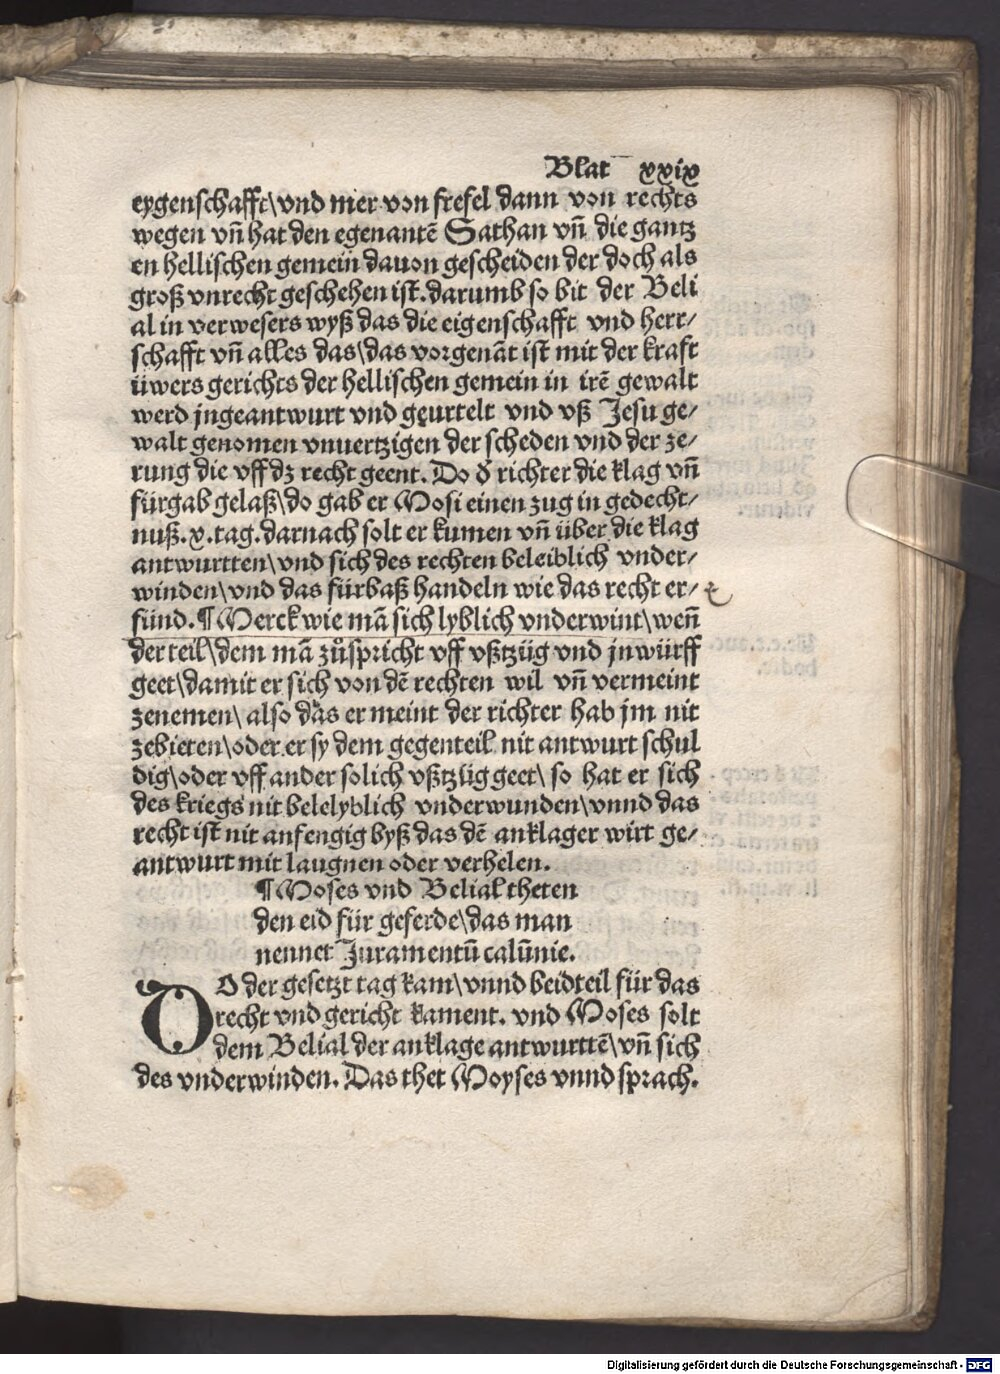 Blat xxix
eygenschafft\vnd mer von frefel dann von rechts
wegen vn̄ hat den egenantē Sathan vn̄ die gantz
en hellischen gemein dauon gescheiden der doch als
groß vnrecht geschehen ist. darumb so bit der Beli
al in verwesers wyß das die eigenschafft vnd herr/
schafft vn̄ alles das\das vorgenāt ist mit der kraft
üwers gerichts der hellischen gemein in irē gewalt
werd jngeantwurt vnd geurtelt vnd vß Jesu ge/
walt genomen vnuertzigen der scheden vnd der ze/
rung die vff dz recht geent. Do d̕ richter die klag vn̄
fürgab gelaß\do gab er Mosi einen zug in gedecht/
nuß.x.tag.darnach solt er kumen vn̄ über die klag
antwurtten\vnd sich des rechten beleiblich vnder/
winden\vnd das fürbaß handeln wie das recht er/
fünd.¶Merck wie mā sich lyblich vnderwint\wen̄
der teil\dem mā zůspricht vff vßtzüg vnd jnwürff
geet\damit er sich von dē rechten wil vn̄ vermeint
zenemen\also das er meint der richter hab jm nit
zebieten\oder er sy dem gegenteil nit antwurt schul
dig\oder vff ander solich vßtzüg geet\so hat er sich
des kriegs nit belelyblich vnderwunden\vnnd das
recht ist nit anfengig byß das dē anklager wirt ge/
antwurt mit laugnen oder verhelen.
¶Moses vnd Belial theten
den eid für geferde\das man
nennet Juramentū calūnie.
DO der gesetzt tag kam\vnnd beidteil für das
recht vnd gericht kament. vnd Moses solt
dem Belial der anklage antwurttē\vn̄ sich
des vnderwinden. Das thet Moyses vnnd sprach.
Digitalisierung gefördert durch die Deutsche Forschungsgemeinschaft - DFG